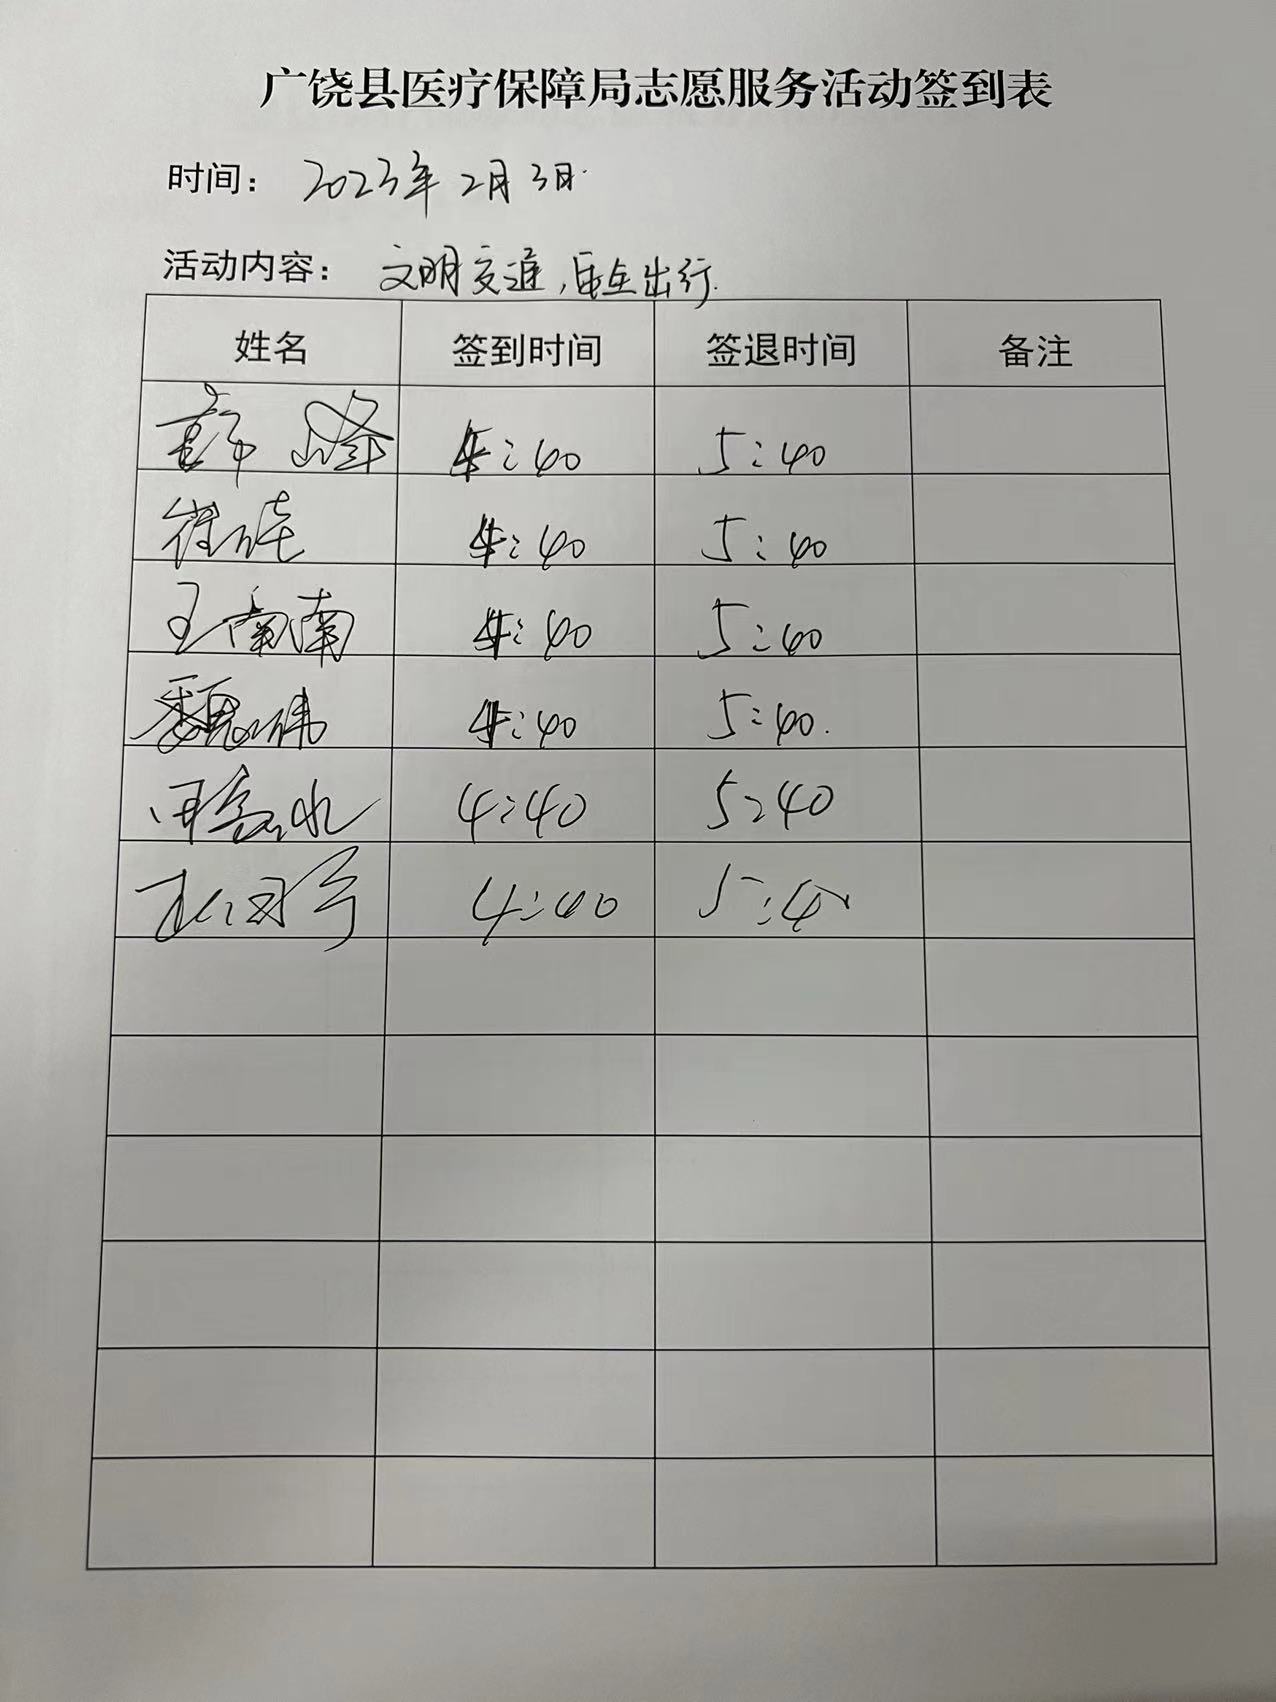 广饶县医疗保障局志愿服务活动签到表
时间： 2023年2月3日.
活动内容： 文明交通,安全出行.
姓名 签到时间 签退时间 备注
峰 4:40 5:40
崔 4:40 5:40
王南南 4:40 5:40
魏伟 4:40 5:40.
4:40 5:40
4:40 5:40